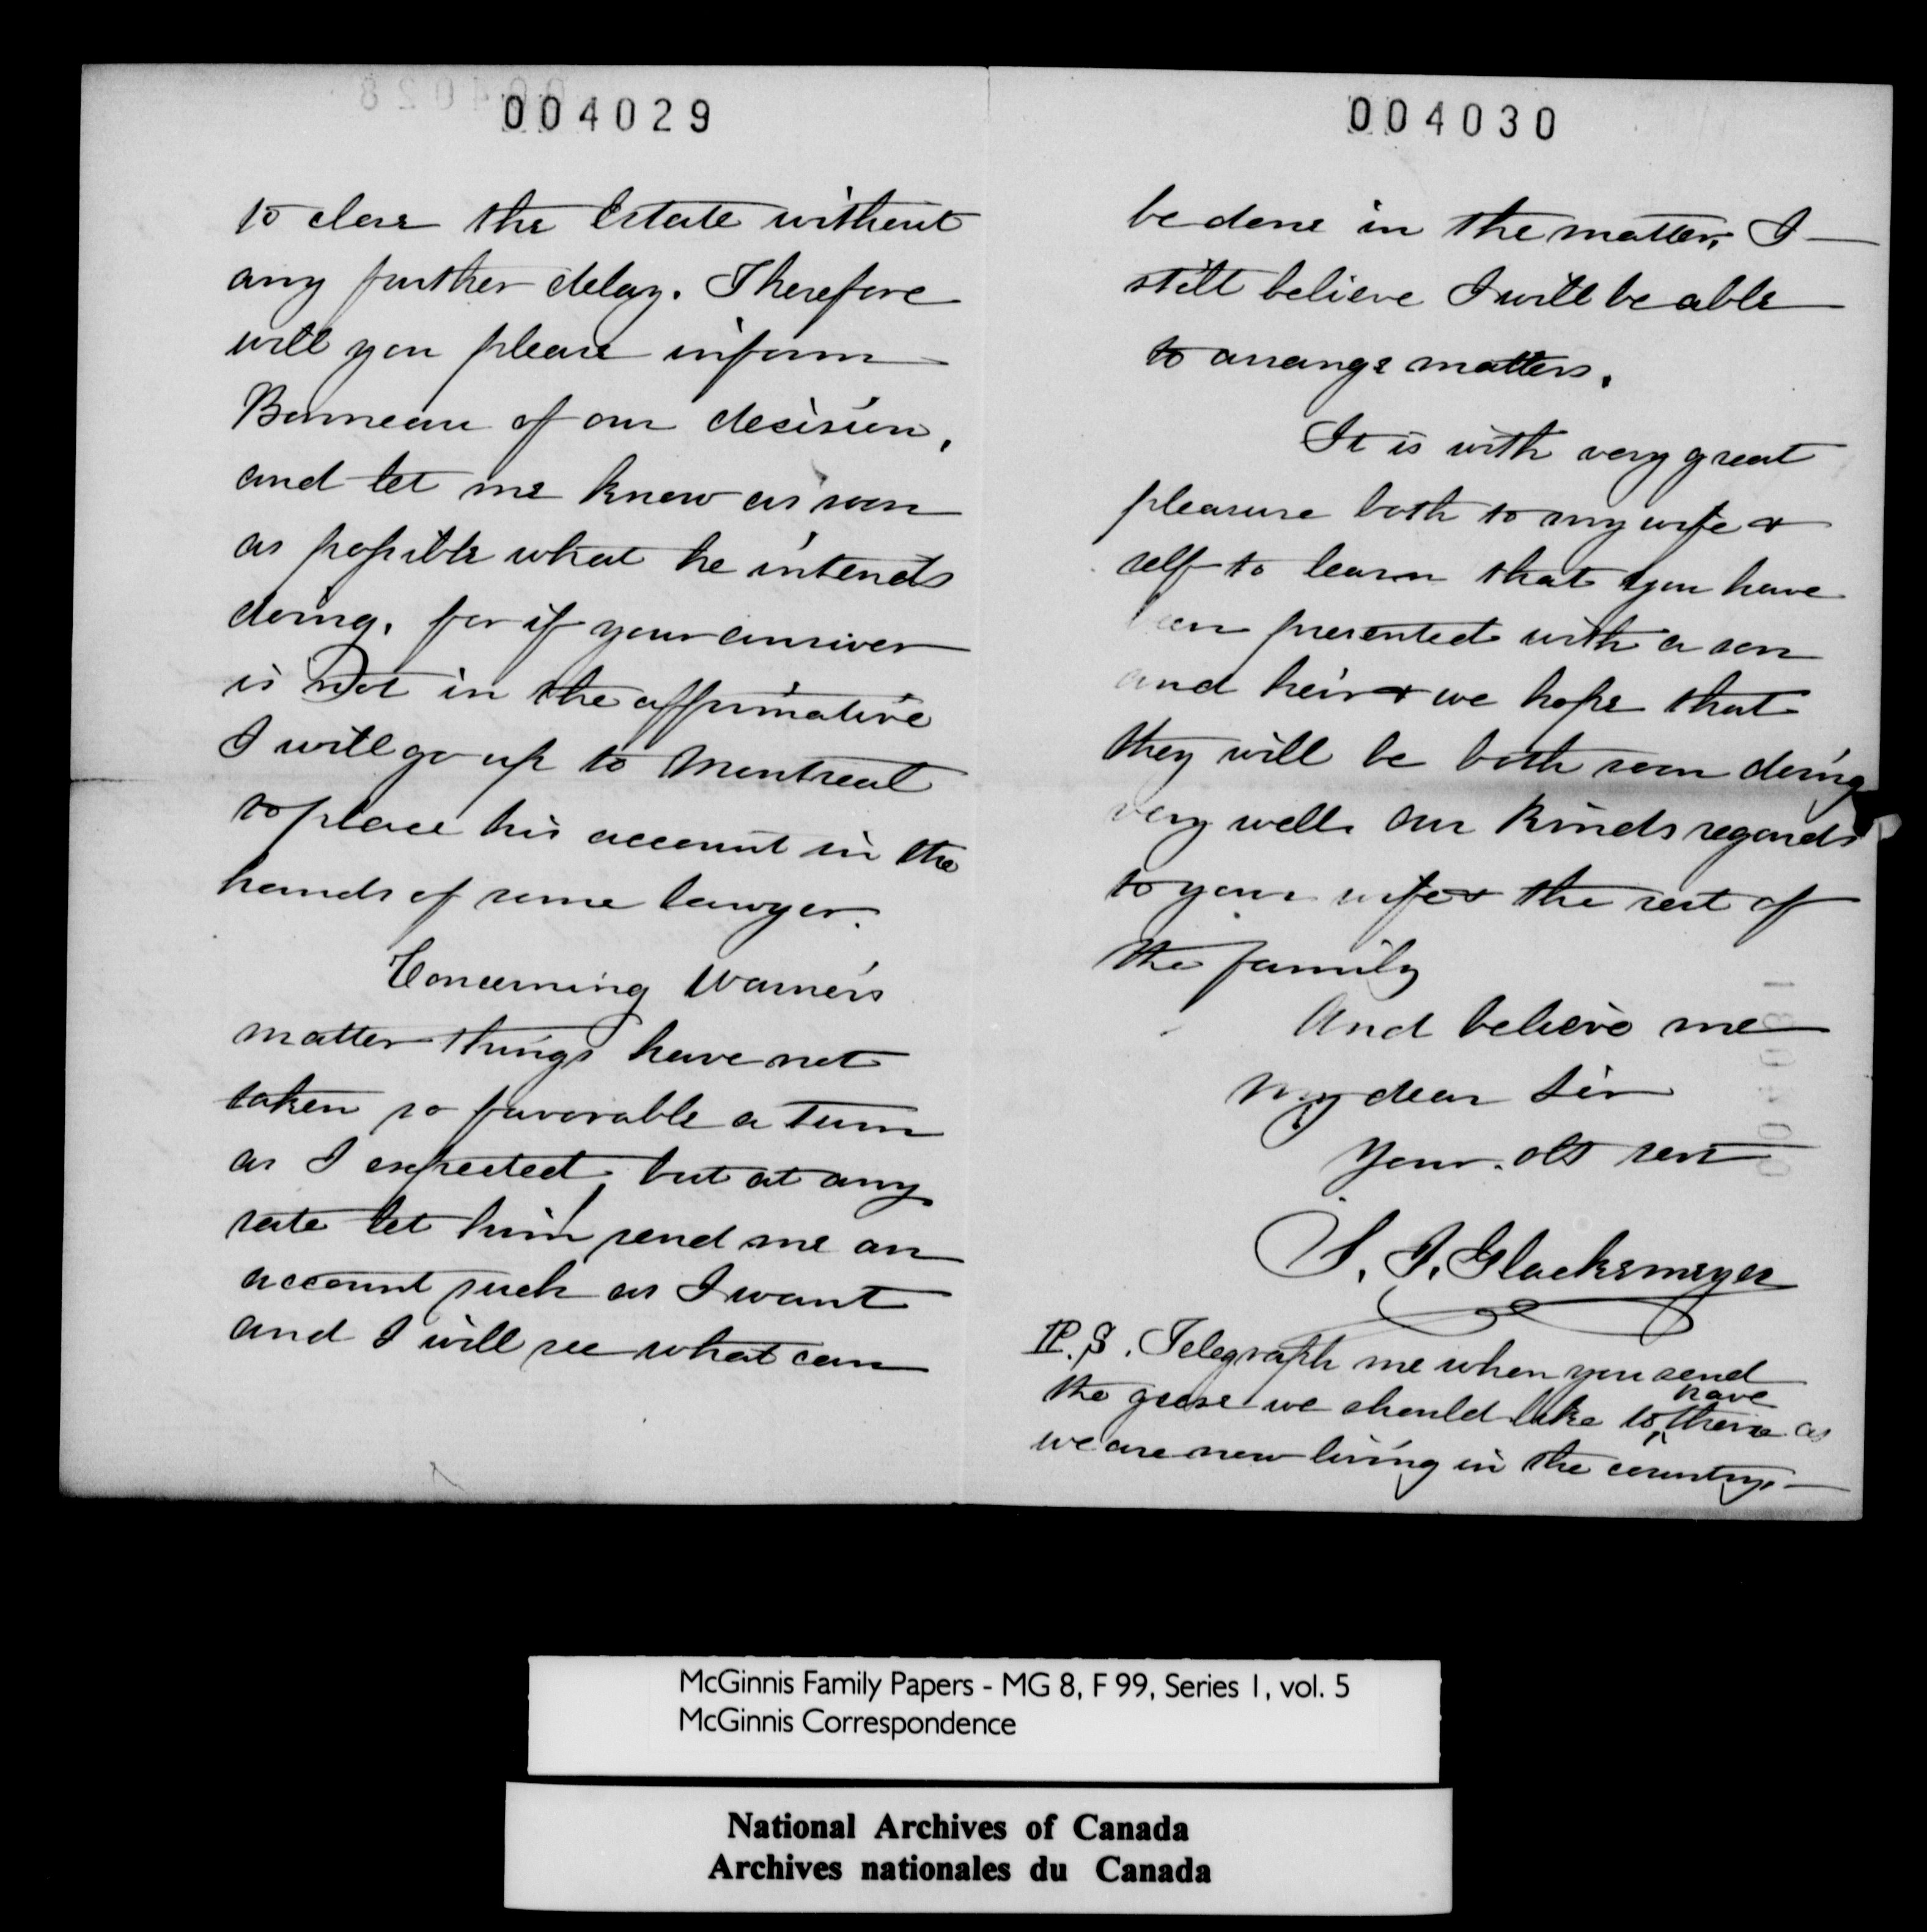 004029
to close the Estate without
any further delay. Therefore
will you please inform
Bonneau of our decision,
and let me know as soon
as possible what he intends
doing, for if your answer
is Not in the affirmative
I will go up to Montreal
to place his account in the
hands of some lawyer.
Concerning Warner's
matter things have not
taken so favorable a turn
as I expected, but at any
rate let him send me an
account such as I want
and I will see what can
004030
be done in the matter, I
still believe I will be able
to arrange matters.
It is with very great
pleasure both to my wife &
self to learn that you have
been presented with a son
and heir & we hope that
they will be both soon doing
very well. Our kinds regards
to your wife & the rest of
the family
And believe me
My dear Sir
Your. obt servt
S. J. Glackemeyer
P.S. Telegraph me when you send
the geese we should like to have them as
we are now living in the country.
McGinnis Family Papers - MG 8, F 99, Series 1, vol. 5
McGinnis Correspondence
National Archives of Canada
Archives nationales du Canada